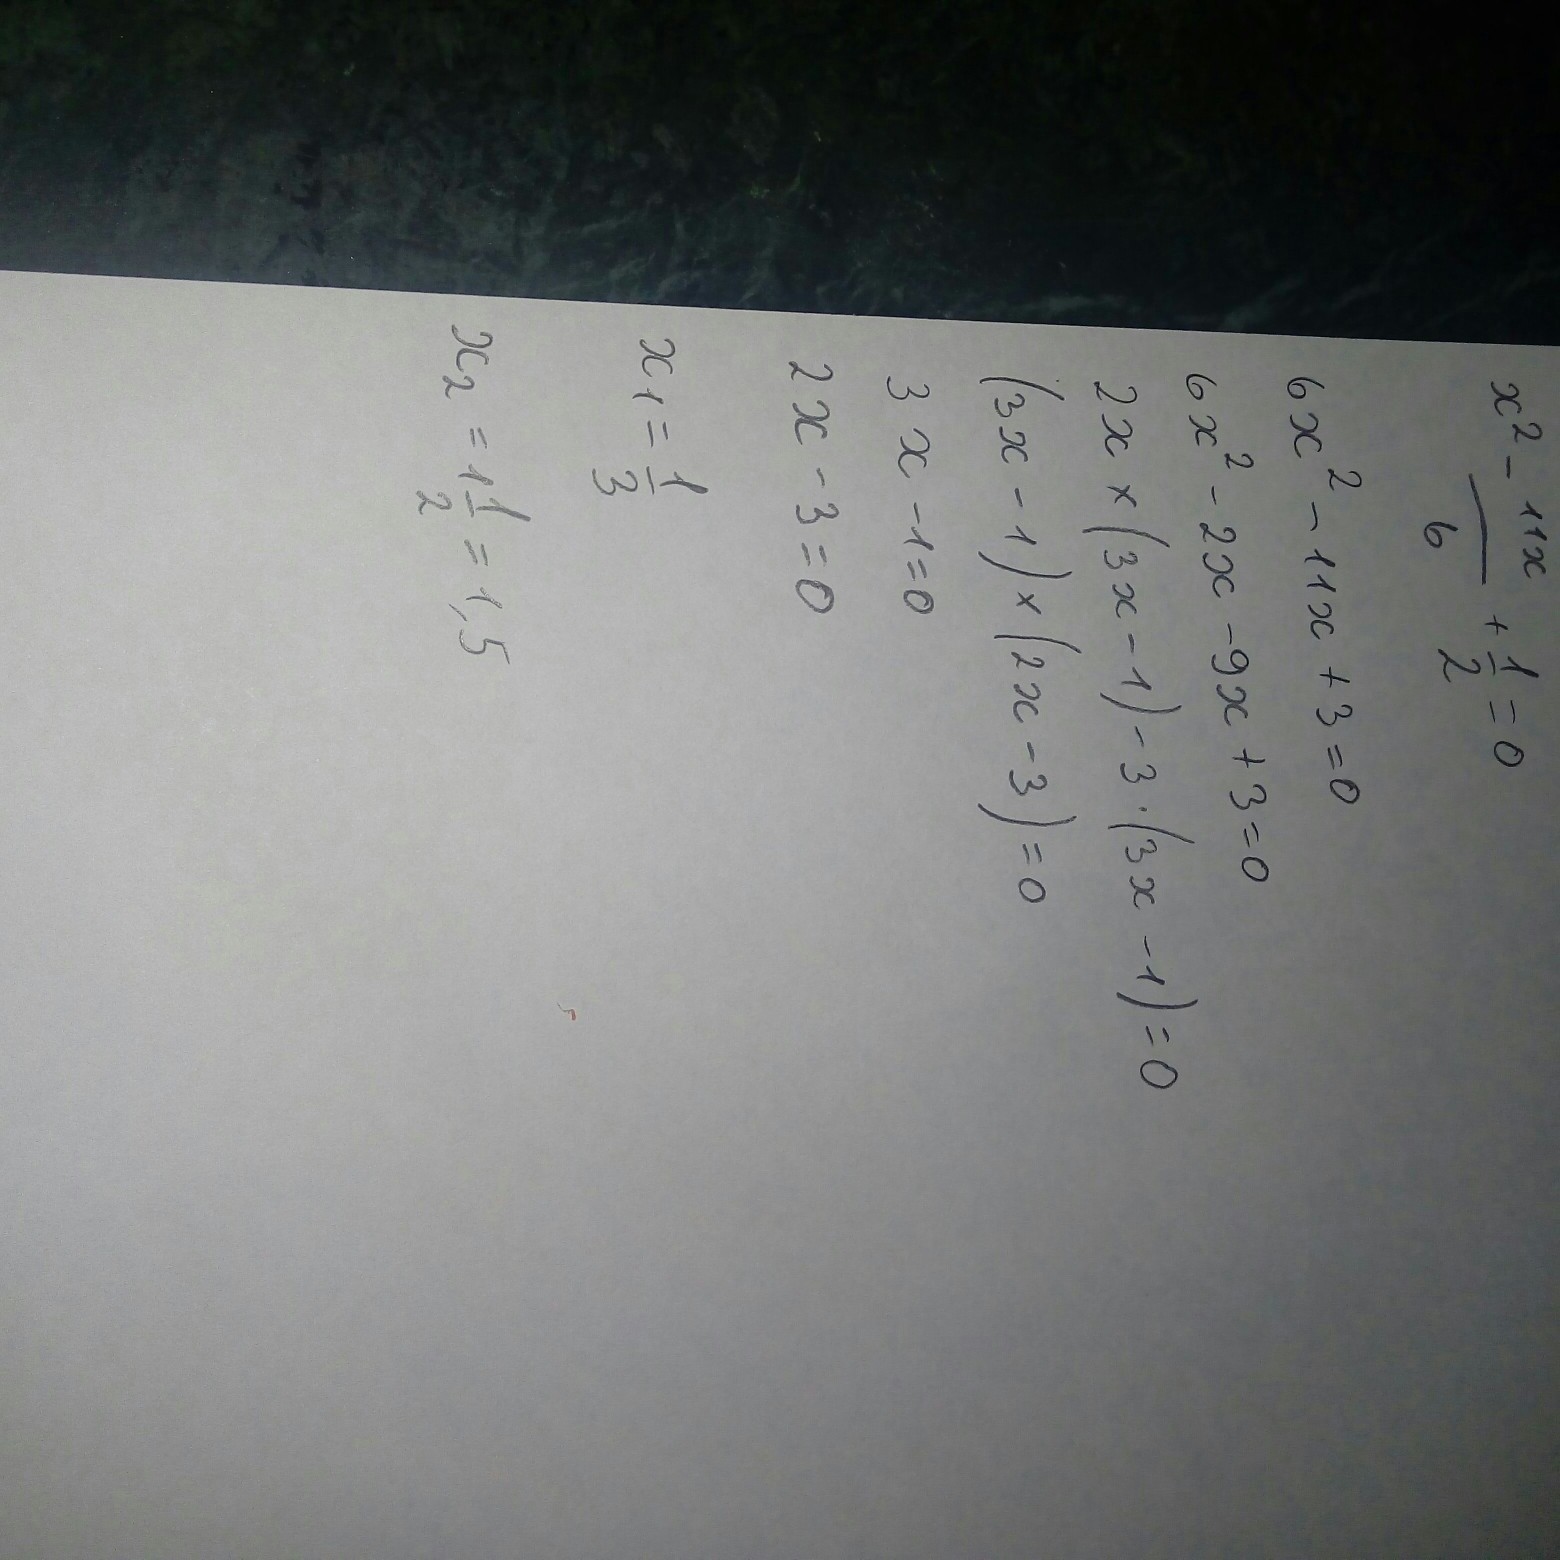 x² - 11x/6 + 1/2 = 0
6x² - 11x + 3 = 0
6x² - 2x - 9x + 3 = 0
2x × (3x - 1) - 3 · (3x - 1) = 0
(3x - 1) × (2x - 3) = 0
3x - 1 = 0
2x - 3 = 0
x₁ = 1/3
x₂ = 1 1/2 = 1,5